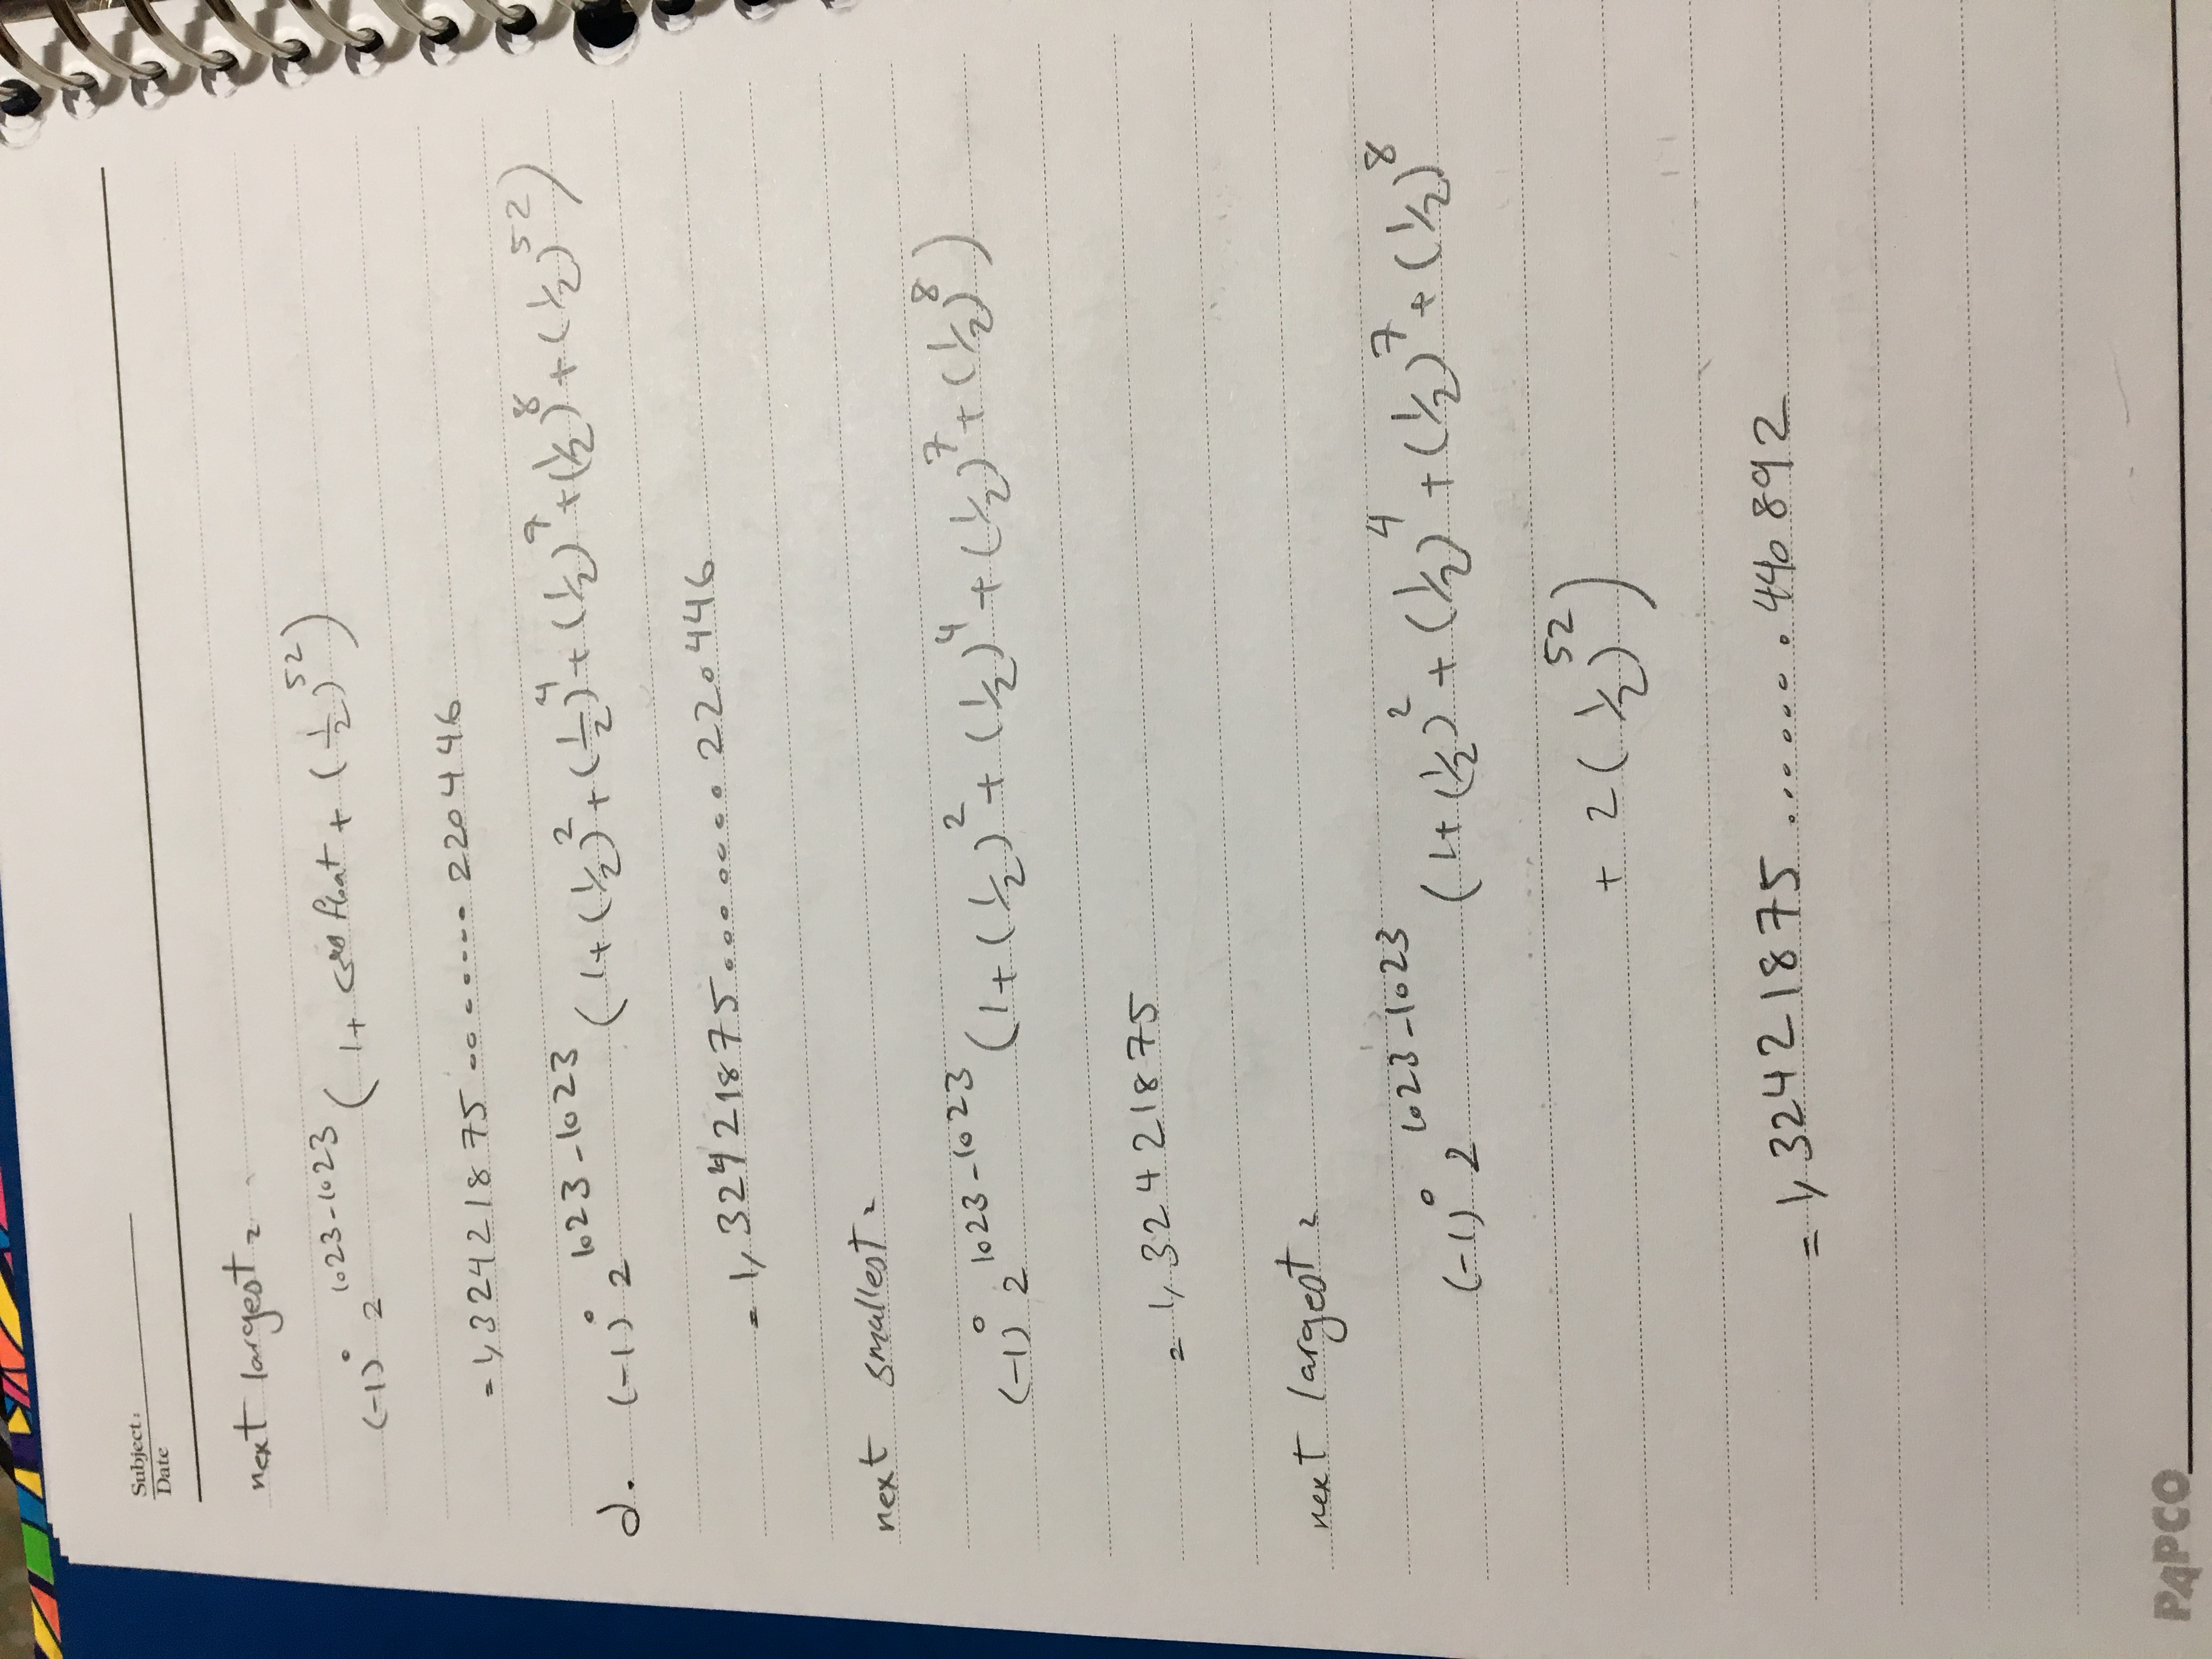 Subject:
Date
next largest =
(-1)⁰ 2¹⁰²³⁻¹⁰²³ (1 + float + (1/2)⁵²)
= 1,32421875 ........ 220446
d. (-1)⁰ 2¹⁰²³⁻¹⁰²³ (1 + (1/2)² + (1/2)⁴ + (1/2)⁷ + (1/2)⁸ + (1/2)⁵²)
= 1,32421875 ........ 220446
next smallest =
(-1)⁰ 2¹⁰²³⁻¹⁰²³ (1 + (1/2)² + (1/2)⁴ + (1/2)⁷ + (1/2)⁸)
= 1,32421875
next largest =
(-1)⁰ 2¹⁰²³⁻¹⁰²³ (1 + (1/2)² + (1/2)⁴ + (1/2)⁷ + (1/2)⁸
+ 2(1/2)⁵²)
= 1,32421875 ........ 440892
PAPCO